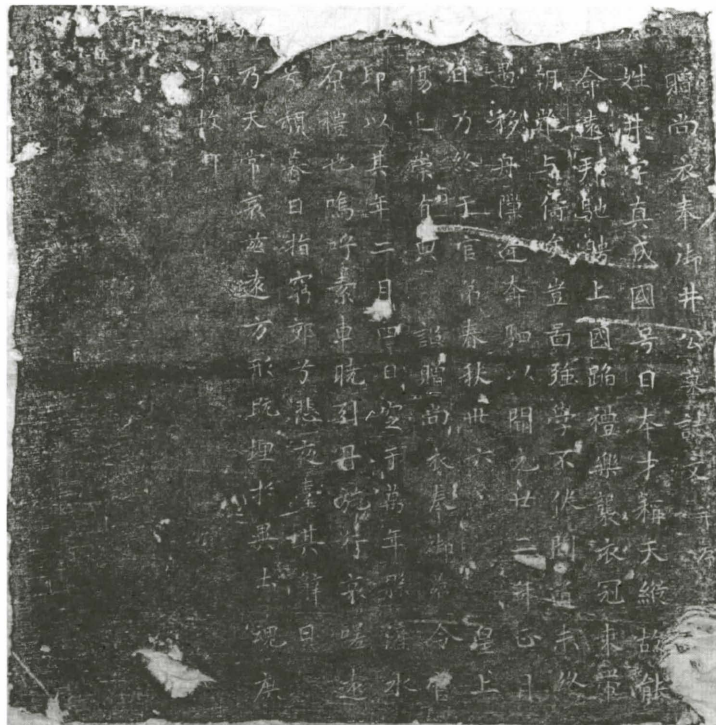 贈尚衣奉御井公墓誌文并序
姓井字真成國号日本才稱天縱故能
命遠邦馳騁上國蹈禮樂襲衣冠束帶
朝難与儔矣豈啚強學不倦聞道未終
遇移舟隙逢奔駟以開元廿二年正月
日乃終于官弟春秋卅六皇上
傷追崇有典詔贈尚衣奉御葬令官
卽以其年二月四日窆于萬年縣滻水
原禮也嗚呼素車曉引丹旐行哀嗟遠
兮頹暮日指窮郊兮悲夜臺其辭曰
乃天常哀茲遠方形旣埋于異土魂庶
歸于故鄉